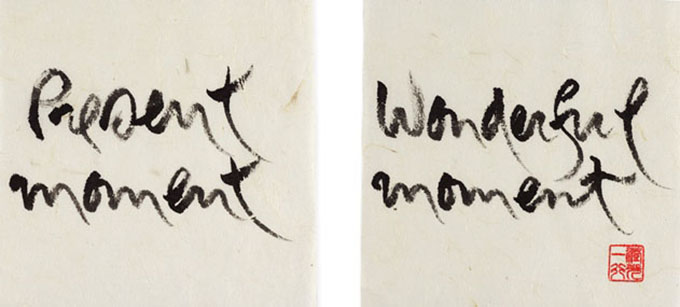 Present
moment
Wonderful
moment
一行